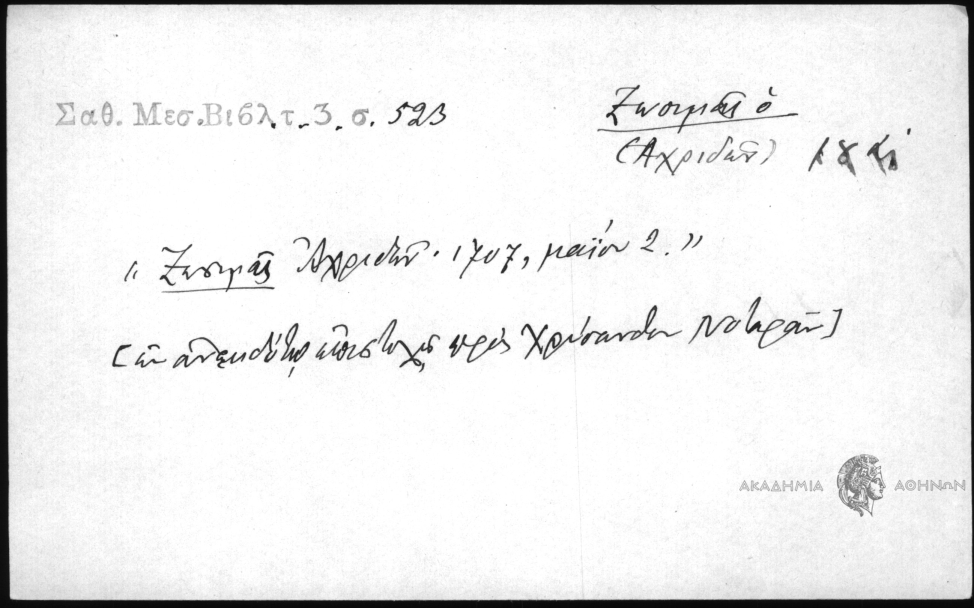 Σαθ. Μεσ. Βιβλ. τ. 3. σ. 523
Ζωσιμᾶς ὁ
(Ἀχριδῶν)
"Ζωσιμᾶς Ἀχριδῶν. 1707, μαΐου 2."
[ἐν ἀνεκδότῳ ἐπιστολῇ πρὸς Χρύσανθον Νοταρᾶν]
ΑΚΑΔΗΜΙΑ ΑΘΗΝΩΝ